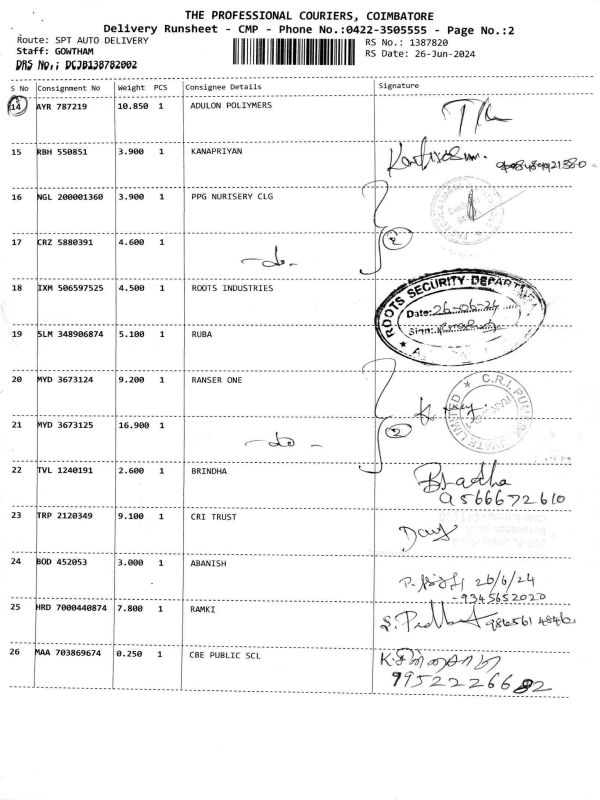 THE PROFESSIONAL COURIERS, COIMBATORE
Delivery Runsheet - CMP - Phone No.:0422-3505555 - Page No.:2
Route: SPT AUTO DELIVERY
RS No.: 1387820
Staff: GOWTHAM
RS Date: 26-Jun-2024
DRS No,: DCJB138782002
S No Consignment No Weight PCS Consignee Details Signature
14 AYR 787219 10.850 1 ADULON POLIYMERS
15 RBH 550851 3.900 1 KANAPRIYAN
16 NGL 200001360 3.900 1 PPG NURISERY CLG
2
17 CRZ 5880391 4.600 1
-do-
18 IXM 506597525 4.500 1 ROOTS INDUSTRIES
ROOTS SECURITY DEPART
Date: 26-06-24
Sign:
19 SLM 348906874 5.100 1 RUBA
20 MYD 3673124 9.200 1 RANSER ONE
C.R.I. PUM
LIMITED
21 MYD 3673125 16.900 1
-do- 2
22 TVL 1240191 2.600 1 BRINDHA
9566672610
23 TRP 2120349 9.100 1 CRI TRUST
24 BOD 452053 3.000 1 ABANISH
26/6/24
-9345652020
25 HRD 7000440874 7.800 1 RAMKI
26 MAA 703869674 0.250 1 CBE PUBLIC SCL